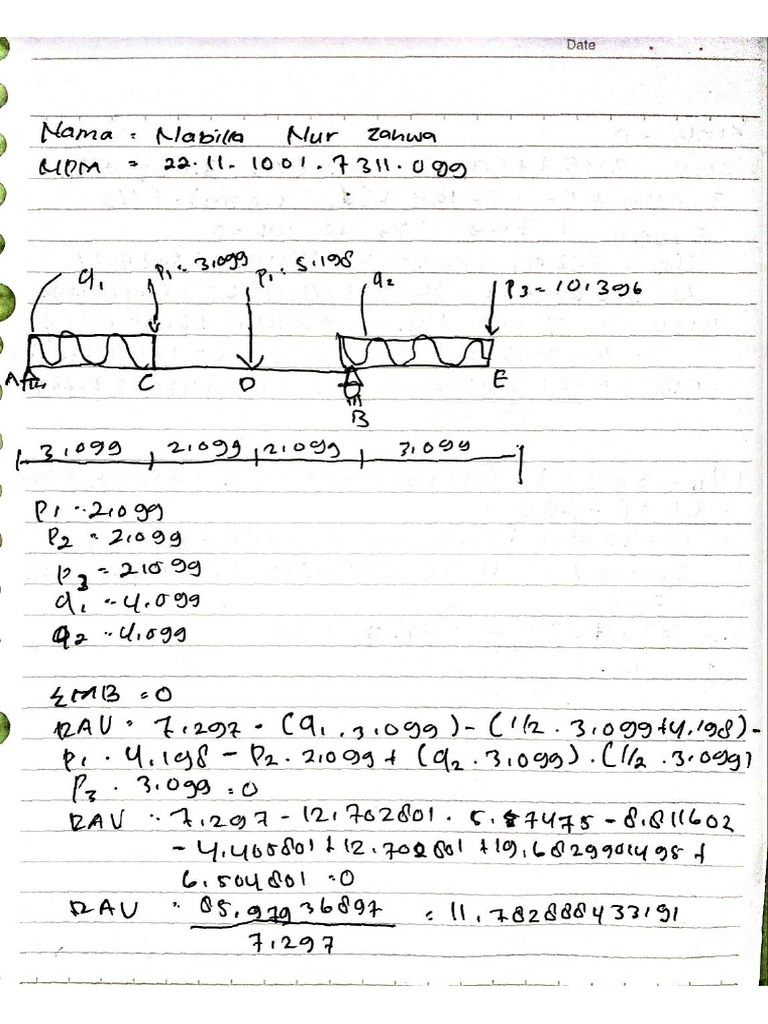 Date
Nama = Nabilla Nur Zahwa
NPM = 22.11.1001.7311.099
q1 P1 = 3,099 P1 = 5,198 q2 P3 = 10,396
A C D B E
3,099 2,099 2,099 3,099
P1 = 2,099
P2 = 2,099
P3 = 2,099
q1 = 4,099
q2 = 4,099
ΣMB = 0
RAV = 7,297 - (q1 . 3,099) - (1/2 . 3,099 + 4,198) -
P1 . 4,198 - P2 . 2,099 + (q2 . 3,099) . (1/2 . 3,099)
P3 . 3,099 = 0
RAV = 7,297 - 12,702801 . 5,87475 - 8,811602
- 4,405801 + 12,702801 + 19,6829901495 +
6,504801 = 0
RAV = 85,97936897 = 11,782888433191
7,297